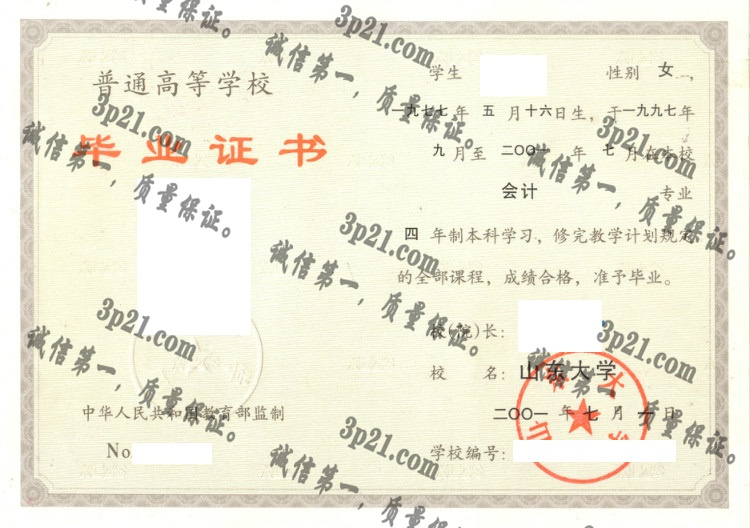 普通高等学校
毕业证书
中华人民共和国教育部监制
No
学生 性别 女 ,
一九七七年 五 月十六日生，于一九九七年
九 月至 二〇〇一 年 七 月在本校
会计 专业
四 年制本科学习，修完教学计划规定
的全部课程，成绩合格，准予毕业。
校(院)长：
校 名： 山东大学
二〇〇一 年 七 月 一 日
学校编号：
3p21.com
诚信第一，质量保证。
3p21.com
诚信第一，质量保证。
3p21.com
诚信第一，质量保证。
3p21.com
诚信第一，质量保证。
3p21.com
诚信第一，质量保证。
3p21.com
诚信第一，质量保证。
3p21.com
诚信第一，质量保证。
质量保证。